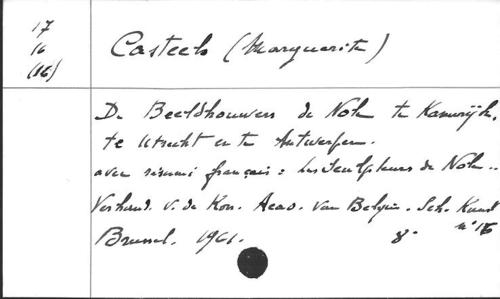 17
16
(16)
Casteels (Marguerite)
De Beeldhouwers de Nole te Kamerijk,
te Utrecht en te Antwerpen.
avec résumé français : les Sculpteurs de Nole..
Verhand. v. de Kon. Acad. van Belgie. Sch. Kunst
n° 16
Brussel. 1961. 8°